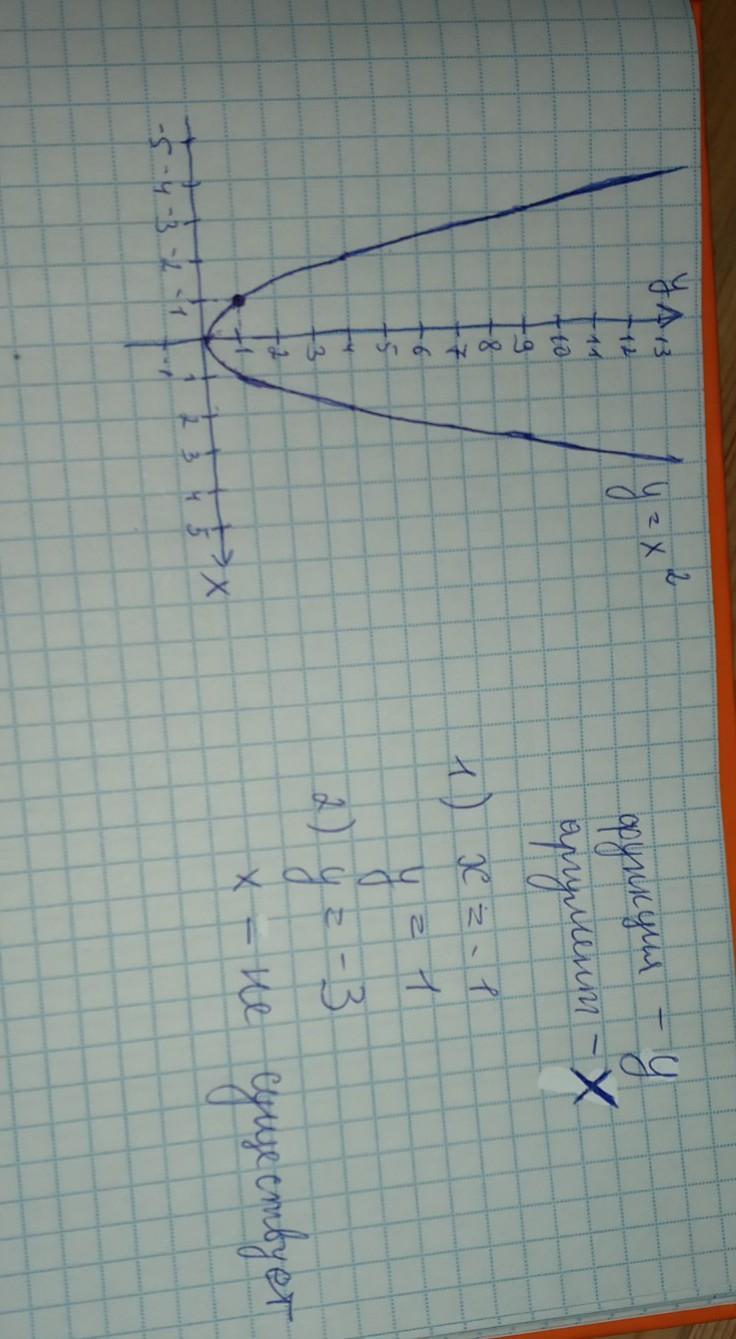 y
13
12
11
10
9
8
7
6
5
4
3
2
1
-5 -4 -3 -2 -1 1 2 3 4 5 x
-1
y = x²
функция - y
аргумент - X
1) x = -1
y = 1
2) y = -3
x - не существует